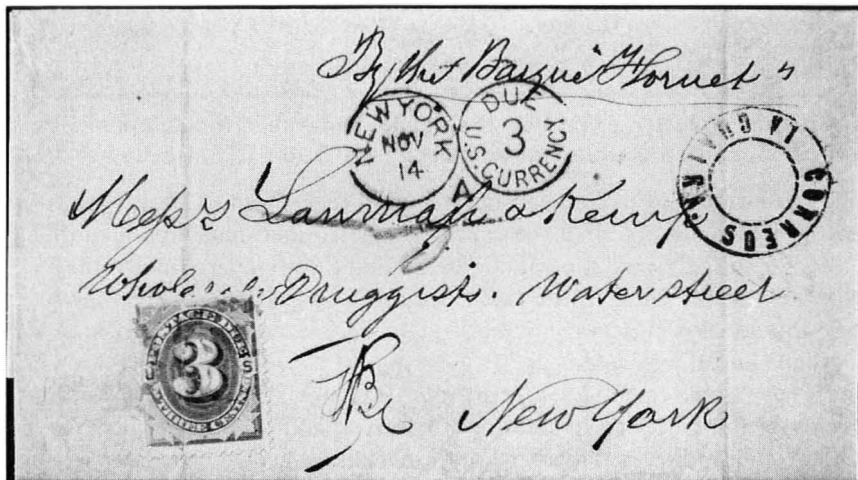 By the Barque "Hornet"
NEW YORK
NOV
14
DUE
3
U.S. CURRENCY
A
CORREOS LA GUAIRA
Mess Lanman & Kemp
Wholesale Druggists. Water street
3
New York